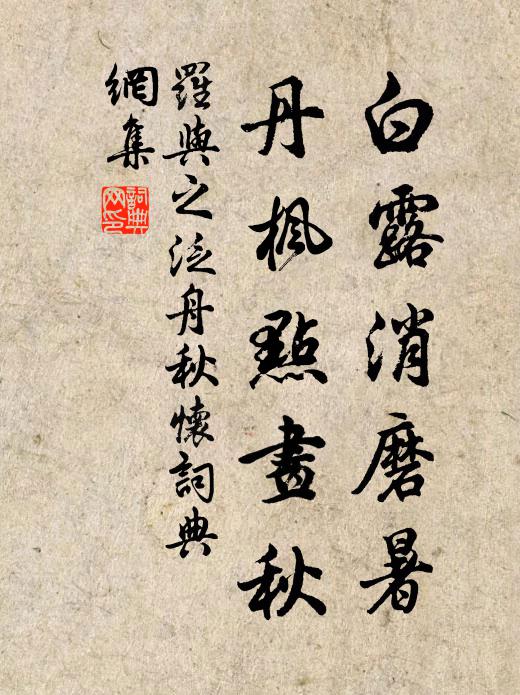 白露消磨暑
丹楓點畫秋
羅與之泛舟秋懷詞典
網集
詞典網印